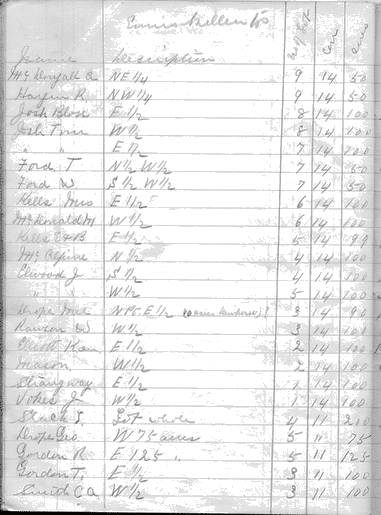 Name Description Lot Con acres
McDougall A NE 1/4 9 14 50
Harper R NW 1/4 9 14 50
Josh Blow E 1/2 8 14 100
Josh Tom W 1/2 8 14 100
" " E 1/2 7 14 100
Ford T N 1/2 W 1/2 7 14 50
Ford W S 1/2 W 1/2 7 14 50
Kells Mrs E 1/2 6 14 100
McDonald W 1/2 6 14 100
Kells E 1/2 5 14 99
McAlpine N 1/2 4 14 100
Elwood J S 1/2 4 14 100
" W 1/2 5 14 100
Drope E 1/2 3 14 90
Rawson W W 1/2 3 14 100
E 1/2 2 14 100
Mason W 1/2 2 14 100
Strangway E 1/2 1 14 100
Vokes J W 1/2 1 14 100
Lot whole 4 11 200
Drope Geo W 75 acres 5 11 75
Gordon R E 125 " 5 11 125
Gordon T. E 1/2 3 11 100
Smith C A W 1/2 3 11 100